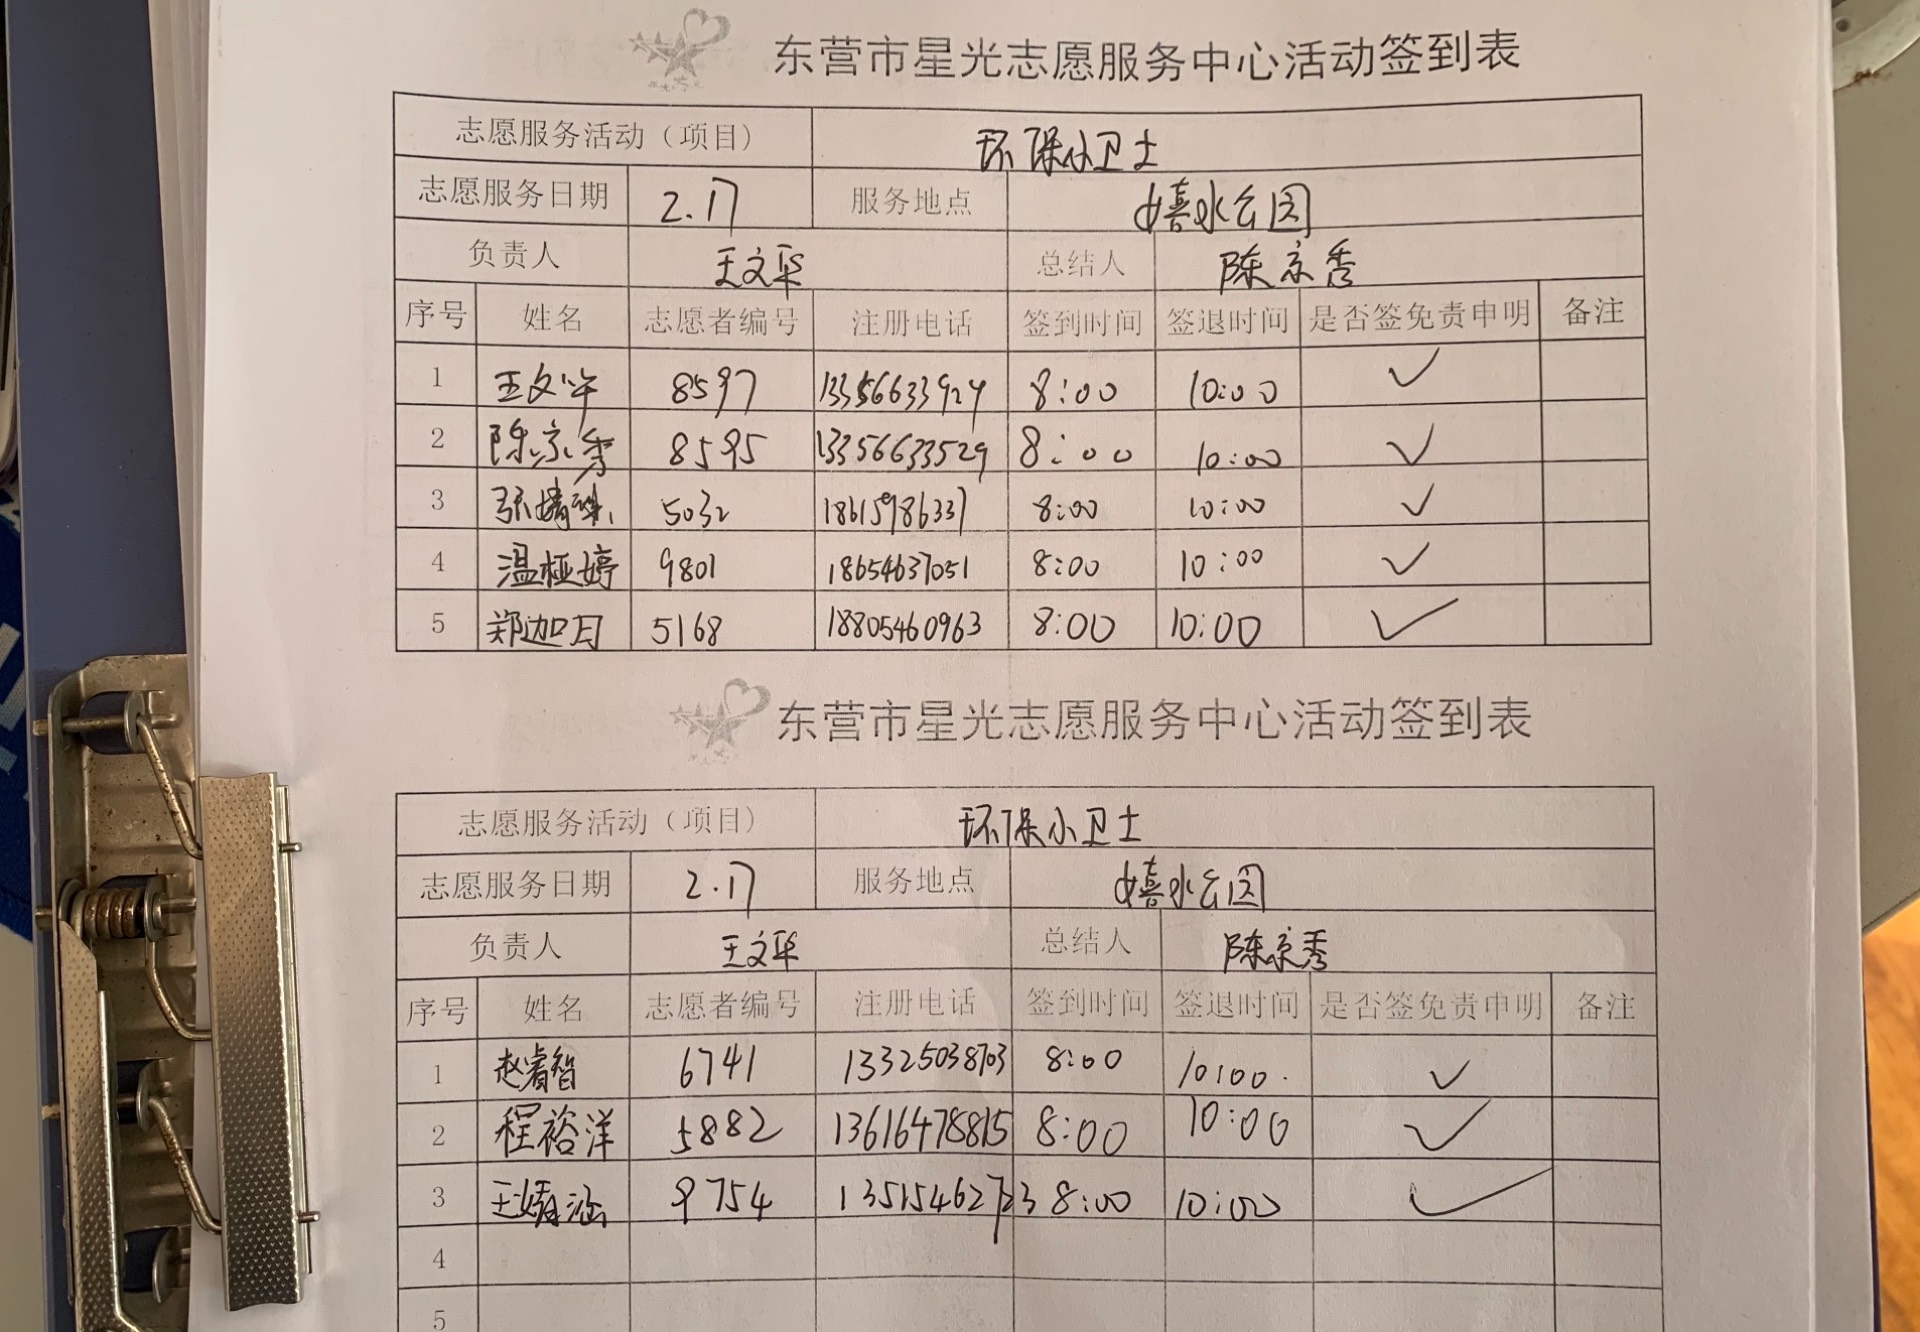 东营市星光志愿服务中心活动签到表
志愿服务活动（项目） 环保小卫士
志愿服务日期 2.17 服务地点 嬉水公园
负责人 王文华 总结人 陈京秀
序号 姓名 志愿者编号 注册电话 签到时间 签退时间 是否签免责申明 备注
1 王文华 8597 13356633924 8:00 10:00 ✓
2 陈京秀 8595 13356633529 8:00 10:00 ✓
3 张婧姝 5032 18615986337 8:00 10:00 ✓
4 温桠婷 9801 18654637051 8:00 10:00 ✓
5 郑迦日 5168 18805460963 8:00 10:00 ✓
东营市星光志愿服务中心活动签到表
志愿服务活动（项目） 环保小卫士
志愿服务日期 2.17 服务地点 嬉水公园
负责人 王文华 总结人 陈京秀
序号 姓名 志愿者编号 注册电话 签到时间 签退时间 是否签免责申明 备注
1 赵睿智 6741 13325038703 8:00 10:00 ✓
2 程裕洋 5882 13616478815 8:00 10:00 ✓
3 王婧涵 9754 13515462723 8:00 10:00 ✓
4
5